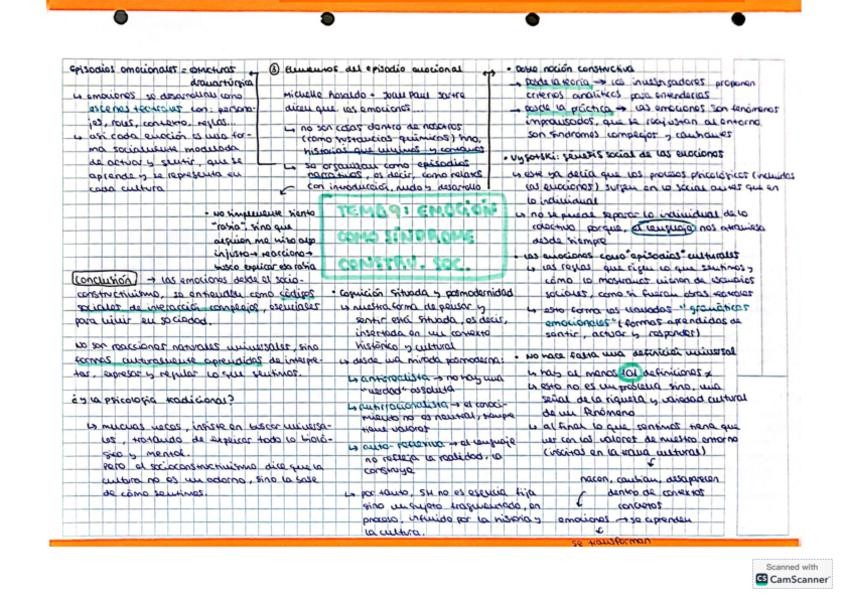 Episodios emocionales = estructuras
dramatúrgica
↳ emociones se desarrollan como
escenas teatrales con: persona-
jes, roles, contexto, reglas...
↳ así cada emoción es una for-
ma socialmente modulada
de actuar y sentir, que se
aprende y se representa en
cada cultura
Elementos del episodio emocional
Michelle Rosaldo + Jean Paul Sartre
dicen que las emociones...
↳ no son cosas dentro de nosotros
(como sustancias químicas) sino,
historias que vivimos y contamos
↳ se organizan como episodios
narrativos, es decir, como relatos
con introducción, nudo y desarrollo
• No simplemente siento
"rabia", sino que
alguien me hizo algo
injusto → reacciono →
busco explicar esa rabia
TEMA 9: EMOCIÓN
COMO SÍNDROME
CONSTRU. SOC.
Conclusión → las emociones desde el socio-
constructivismo, se entienden como códigos
sociales de interacción complejos, esenciales
para vivir en sociedad.
No son reacciones naturales universales, sino
formas culturalmente aprendidas de interpre-
tar, expresar y regular lo que sentimos.
¿y la psicología tradicional?
↳ muchas veces, insiste en buscar universa-
les, tratando de explicar todo lo bioló-
gico y mental.
Pero el socioconstructivismo dice que la
cultura no es un adorno, sino la base
de cómo sentimos.
• Cognición situada y posmodernidad
↳ nuestra forma de pensar y
sentir está situada, es decir,
insertada en un contexto
histórico y cultural
↳ desde una mirada posmoderna:
↳ antirrealista → no hay una
"verdad" absoluta
↳ antirracionalista → el conoci-
miento no es neutral, siempre
tiene valores
↳ auto-reflexiva → el lenguaje
no refleja la realidad, la
construye
↳ por tanto, SH no es esencia fija
sino un sujeto fragmentado, en
proceso, influido por la historia y
la cultura.
• Doble noción constructiva
→ desde la teoría → los investigadores proponen
criterios analíticos para entenderlas
→ desde la práctica → las emociones son fenómenos
improvisados, que se reajustan al entorno.
son síndromes complejos y cambiantes
• Vygotski: génesis social de las emociones
↳ este ya decía que los procesos psicológicos (incluidas
las emociones) surgen en lo social antes que en
lo individual
↳ no se puede separar lo individual de lo
colectivo porque, el lenguaje nos atraviesa
desde siempre
• Las emociones como "episodios" culturales
↳ las reglas que rigen lo que sentimos y
cómo lo mostramos vienen de
sociales, como si fueran obras teatrales
↳ esto forma las llamadas "gramáticas
emocionales" (formas aprendidas de
sentir, actuar y responder)
• No hace falta una definición universal
↳ hay al menos 101 definiciones
↳ esto no es un problema sino, una
señal de la riqueza y variedad cultural
de un fenómeno
↳ al final lo que sentimos tiene que
ver con los valores de nuestro entorno
(inscritas en la trama cultural)
nacen, cambian, desaparecen
dentro de contextos
concretos
emociones → se aprenden
se transforman
Scanned with
CS CamScanner